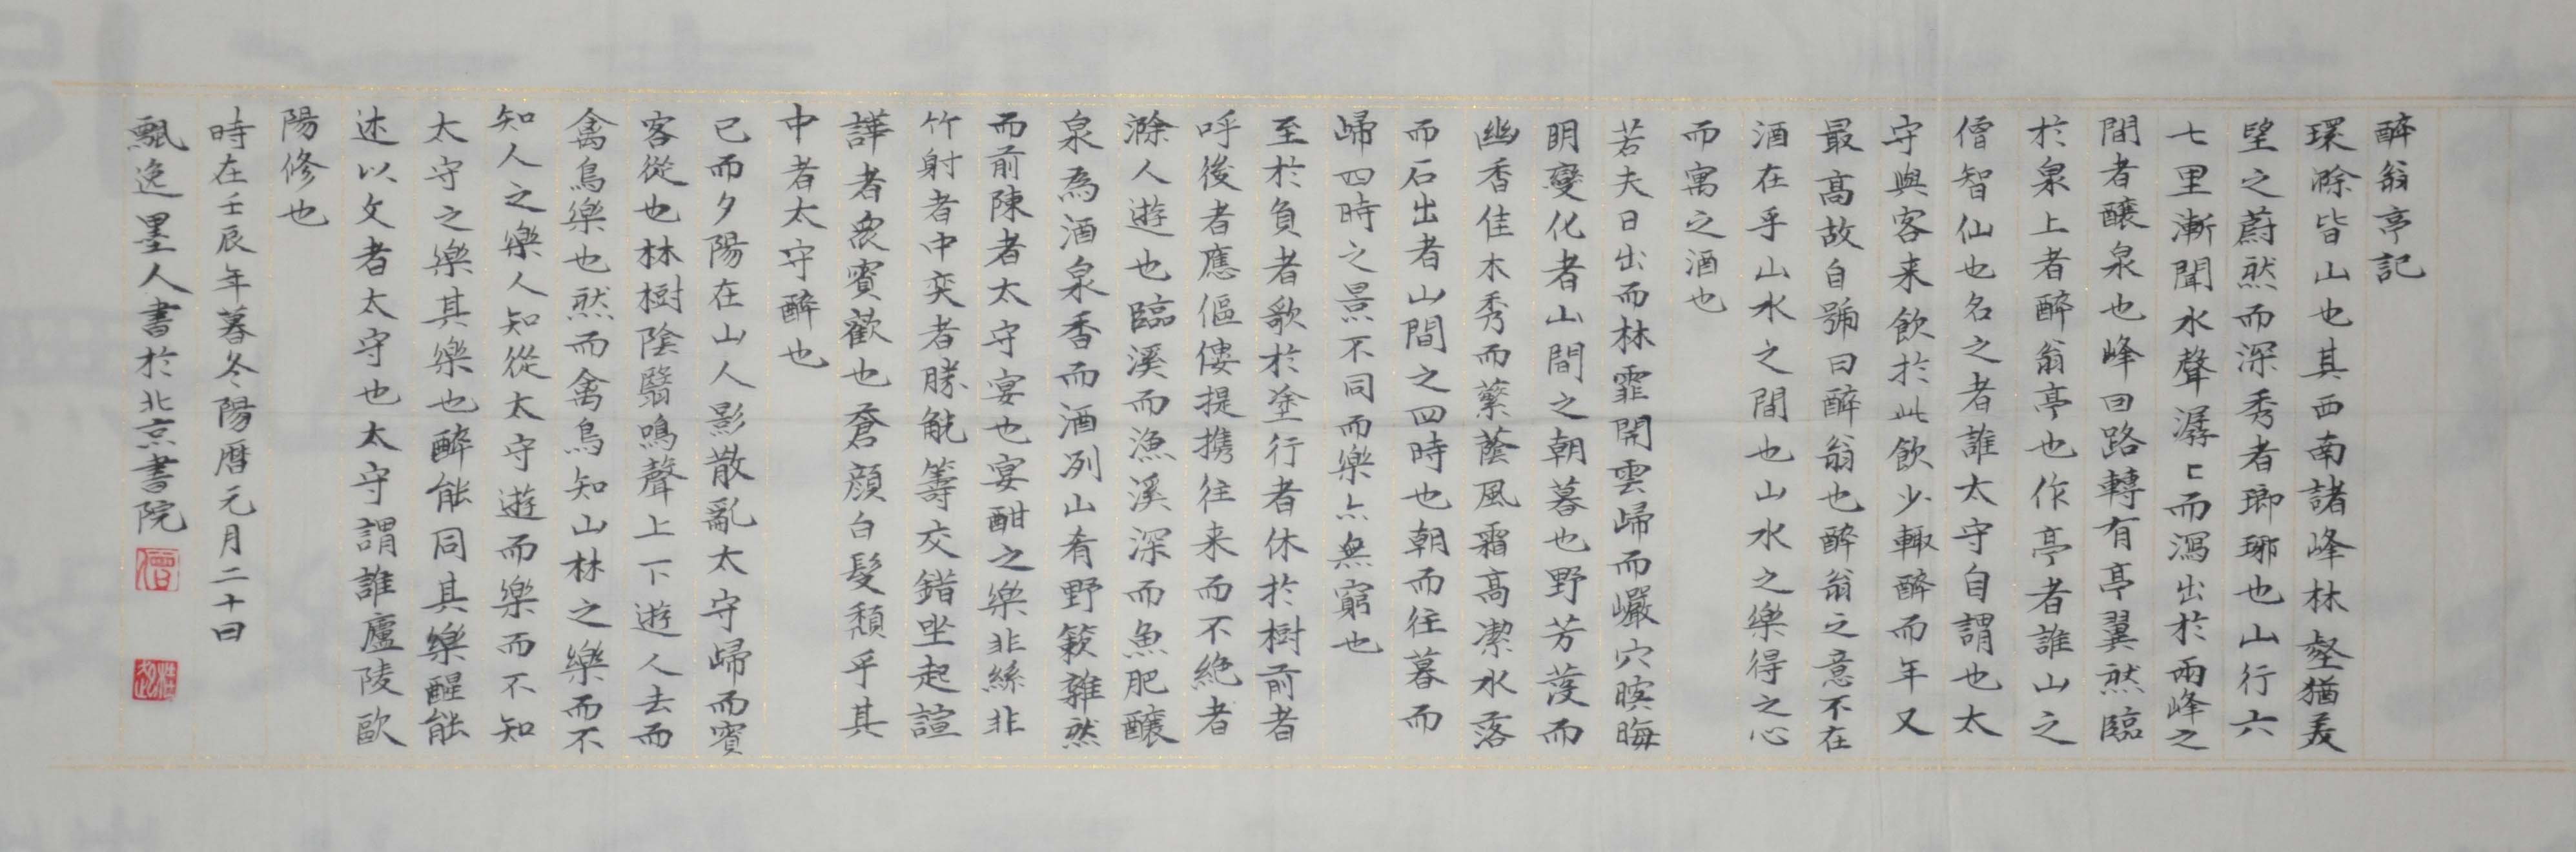 醉翁亭記
環滁皆山也其西南諸峰林壑猶美
望之蔚然而深秀者瑯琊也山行六
七里漸聞水聲潺〻而瀉出於兩峰之
間者釀泉也峰回路轉有亭翼然臨
於泉上者醉翁亭也作亭者誰山之
僧智仙也名之者誰太守自謂也太
守與客来飲於此飲少輒醉而年又
最高故自號曰醉翁也醉翁之意不在
酒在乎山水之間也山水之樂得之心
而寓之酒也
若夫日出而林霏開雲歸而巖穴暝晦
明變化者山間之朝暮也野芳發而
幽香佳木秀而蘩蔭風霜高潔水落
而石出者山間之四時也朝而往暮而
歸四時之景不同而樂亦無窮也
至於負者歌於塗行者休於樹前者
呼後者應傴僂提携往来而不絶者
滁人遊也臨溪而漁溪深而魚肥釀
泉為酒泉香而酒冽山肴野簌雜然
而前陳者太守宴也宴酣之樂非絲非
竹射者中奕者勝觥籌交錯坐起諠
譁者衆賓歡也蒼顔白髮頹乎其
中者太守醉也
已而夕陽在山人影散亂太守歸而賓
客從也林樹陰翳鳴聲上下遊人去而
禽鳥樂也然而禽鳥知山林之樂而不
知人之樂人知從太守遊而樂而不知
太守之樂其樂也醉能同其樂醒能
述以文者太守也太守謂誰廬陵歐
陽修也
時在壬辰年暮冬陽曆元月二十日
飄逸墨人書於北京書院